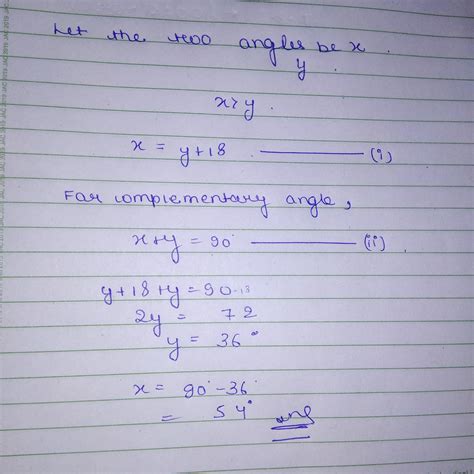 Let the two angles be x .
y .
x > y .
x = y + 18 ——— (i)
For complementary angle,
x + y = 90° ——— (ii)
y + 18 + y = 90 - 18
2y = 72
y = 36°
x = 90° - 36°
= 54° ans